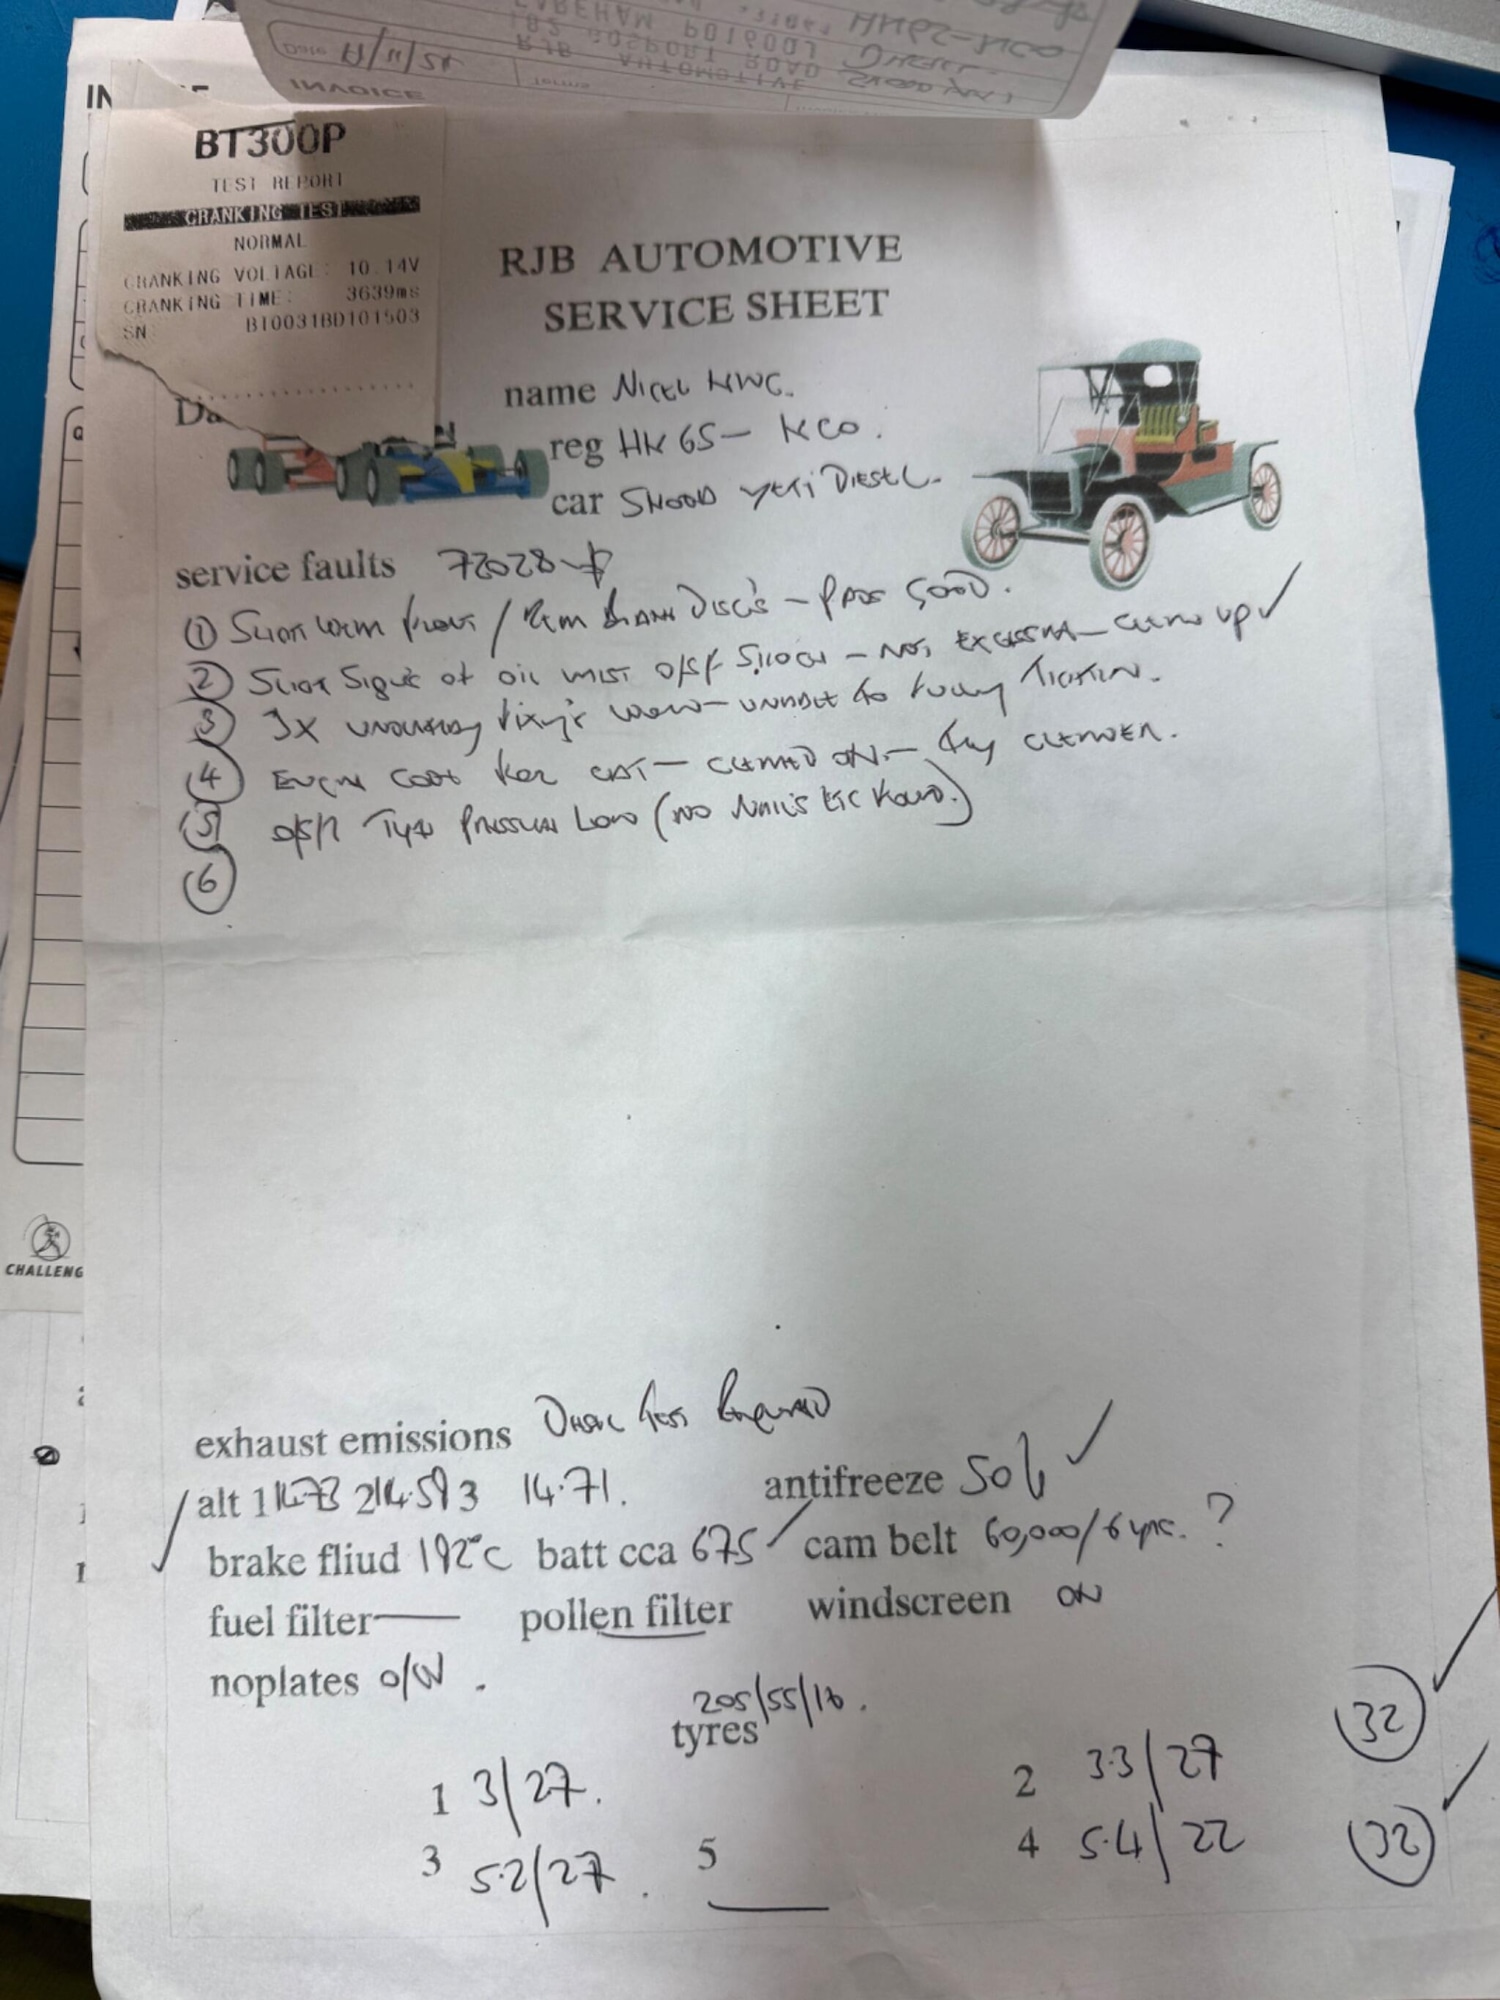 INVOICE
Date
RJB AUTOMOTIVE
182 GOSPORT ROAD
FAREHAM PO16 0QJ
IN
BT300P
TEST REPORT
CRANKING TEST
NORMAL
CRANKING VOLTAGE: 10.14V
CRANKING TIME: 3639ms
SN: BT0031BD101503
RJB AUTOMOTIVE
SERVICE SHEET
Da
name Nigel
reg HK65-
car Skoda Yeti Diesel.
service faults 72028
① Slight worn front / rear brake Discs - Pads Good.
② Slight Signs of oil mist o/s/f Shock - Not Excessive - up ✓
③ 3X undertray fixing's worn - unable to fully Tighten.
④ Engine Code For - on - Try cleaner.
⑤ o/s/r Tyre Pressure Low (No Nails Etc Found.)
⑥
CHALLENG
exhaust emissions Diesel Test Required
alt 1 14.73 2 14.59 3 14.71. antifreeze 50% ✓
brake fliud 192°C batt cca 675 ✓ cam belt 60,000/6 yrs. ?
fuel filter — pollen filter windscreen ON
noplates o/w.
205/55/16.
tyres
1 3/27. 2 3.3/27 32 ✓
3 5.2/27. 5 4 5.4/22 32 ✓